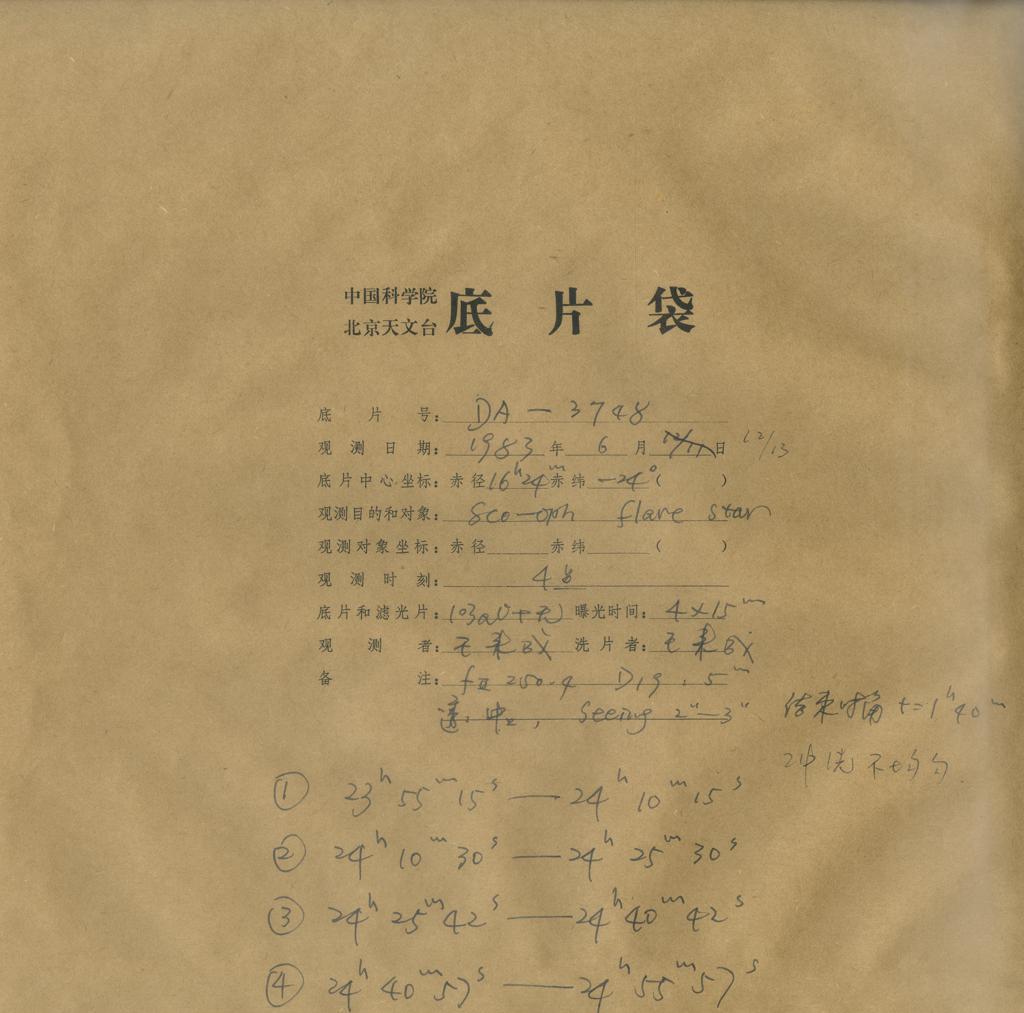 中国科学院
北京天文台 底片袋
底片号: DA-3748
观测日期: 1983年 6月 日 12/13
底片中心坐标: 赤径16h24m赤纬-24°( )
观测目的和对象: Sco-oph flare star
观测对象坐标: 赤径 赤纬 ( )
观测时刻: 4
底片和滤光片: 103aO+无 曝光时间: 4×15m
观测者: 洗片者:
备注: fII 250.4 D19, 5m
中, Seeing 2"-3" 结束时角 t=1h40m
冲洗不均匀
① 23h55m15s—24h10m15s
② 24h10m30s—24h25m30s
③ 24h25m42s—24h40m42s
④ 24h40m57s—24h55m57s